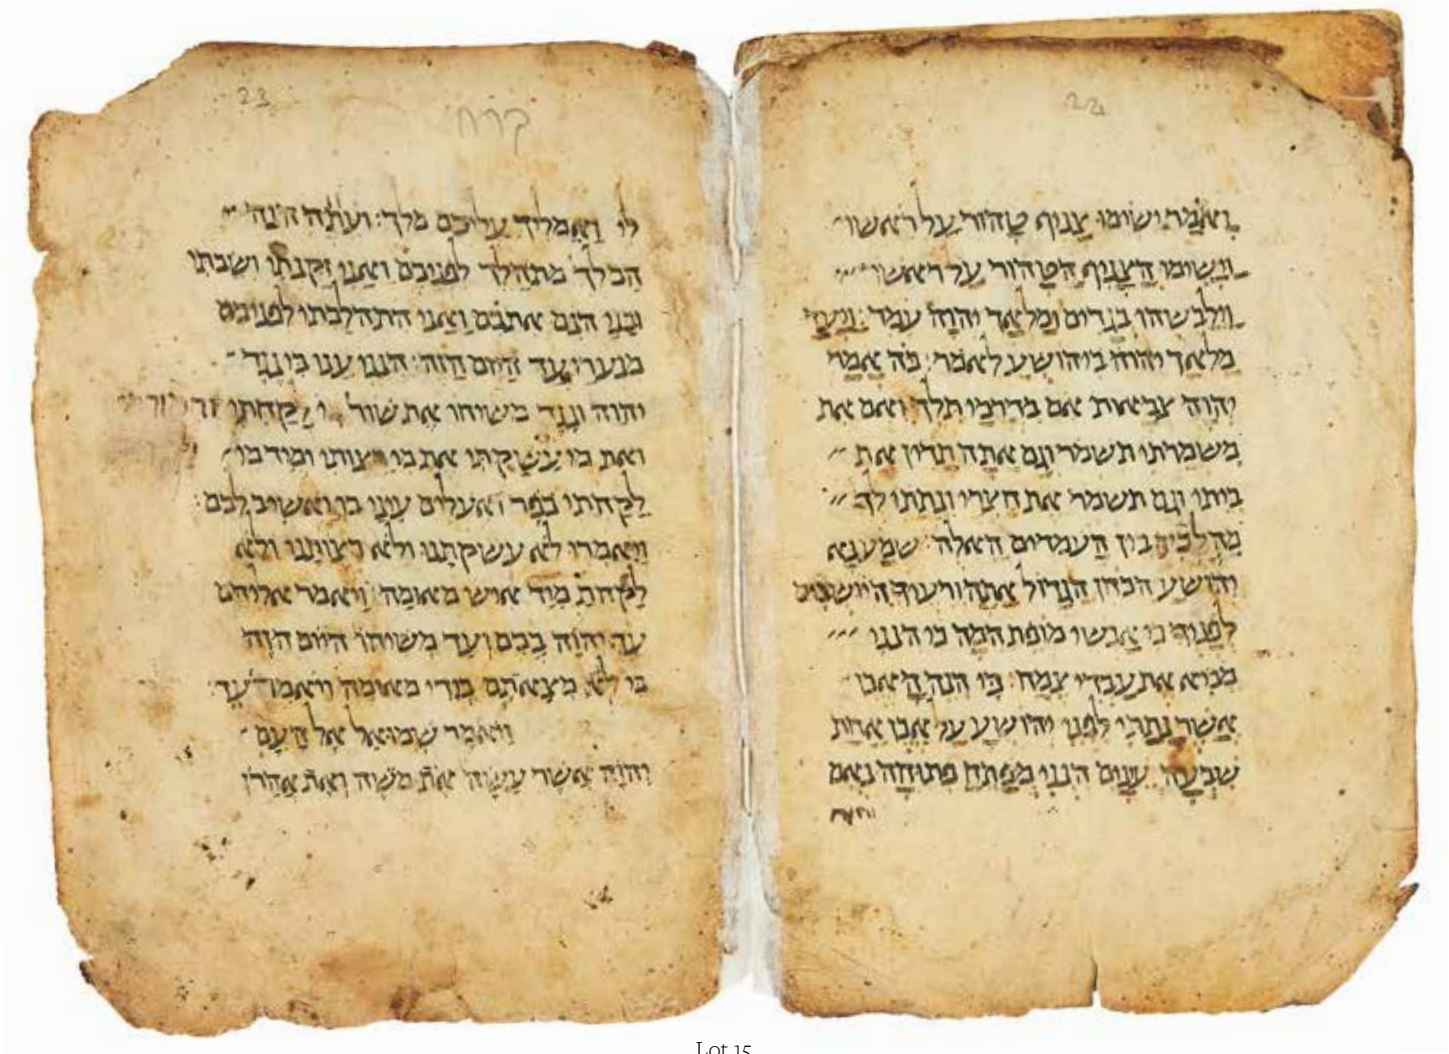 22
ואמר ישימו צניף טהור על ראשו
וישימו הצניף הטהור על ראשו
וילבשהו בגדים ומלאך יהוה עמד: ויעד
מלאך יהוה ביהושע לאמר: כה אמר
יהוה צבאות אם בדרכי תלך ואם את
משמרתי תשמר וגם אתה תדין את
ביתי וגם תשמר את חצרי ונתתי לך
מהלכים בין העמדים האלה: שמע נא
יהושע הכהן הגדול אתה ורעיך היושבים
לפניך כי אנשי מופת המה כי הנני
מביא את עבדי צמח: כי הנה האבן
אשר נתתי לפני יהושע על אבן אחת
שבעה עינים הנני מפתח פתוחה נאם
23
קרח
לי ואמליך עליכם מלך: ועתה הנה
המלך מתהלך לפניכם ואני זקנתי ושבתי
ובני הנם אתכם ואני התהלכתי לפניכם
מנערי עד היום הזה: הנני ענו בי נגד
יהוה ונגד משיחו את שור מי לקחתי
ואת מי עשקתי את מי רצותי ומיד מי
לקחתי כפר ואעלים עיני בו ואשיב לכם:
ויאמרו לא עשקתנו ולא רצותנו ולא
לקחת מיד איש מאומה: ויאמר אליהם
עד יהוה בכם ועד משיחו היום הזה
כי לא מצאתם בידי מאומה ויאמר עד:
ויאמר שמואל אל העם
יהוה אשר עשה את משה ואת אהרן
Lot 15